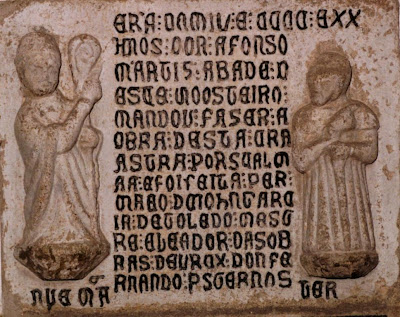 ERA:DAMIL:E:QUAC:E:XX
ANOS:DOR:AFONSO
MARTIS:ABADE:D
ESTE:MOOSTEIRO:
MANDOU:FASER:A
OBRA:DESTA:CRA
ASTRA:PORSUALM
AA:EFOI:FEITA:PER:
MAÃO:DMOHN:GARCI
A:DETOLEDO:MAST
RE:ELEADOR:DASOB
RAS:DELREX:DONFE
RNANDO:PSTERNOS
AVE MA TER